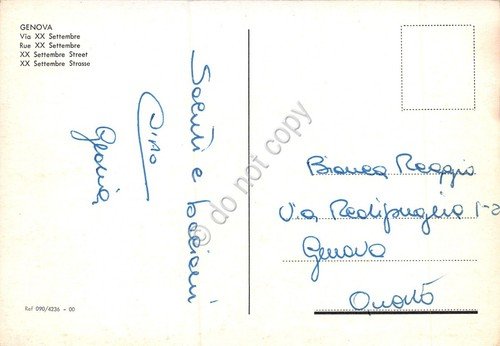 GENOVA
Via XX Settembre
Rue XX Settembre
XX Settembre Street
XX Settembre Strasse
Saluti e bacioni
Ciao
Gloria
do not copy
Bianca Reggio
Via Redipuglia 1-2
Genova
Quarto
Ref 090/4236 - 00